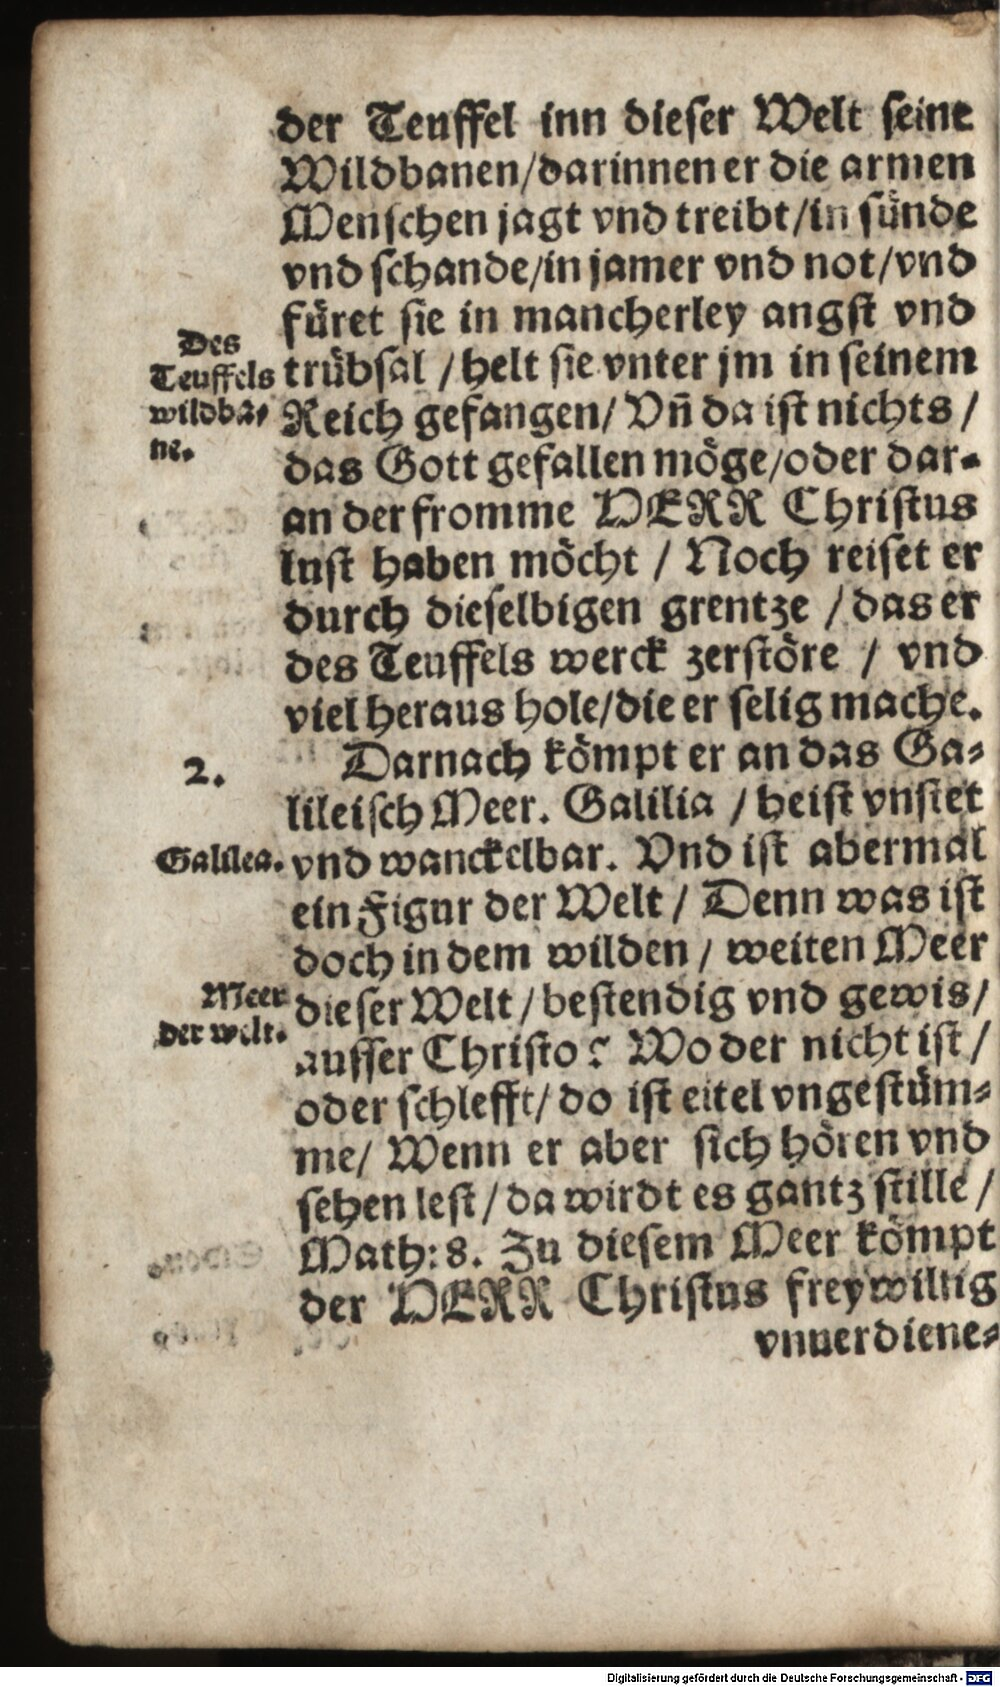 der Teuffel inn dieser Welt seine
Wildbanen/darinnen er die armen
Menschen jagt vnd treibt/in sünde
vnd schande/in jamer vnd not/vnd
füret sie in mancherley angst vnd
Des
Teuffels
wildba⸗
ne.
trübsal / helt sie vnter jm in seinem
Reich gefangen/ Vñ da ist nichts /
das Gott gefallen möge/oder dar⸗
an der fromme HERR Christus
lust haben möcht / Noch reiset er
durch dieselbigen grentze / das er
des Teuffels werck zerstöre / vnd
viel heraus hole/die er selig mache.
2.
Darnach kömpt er an das Ga⸗
lileisch Meer. Galilia / heist vnstet
Galilea.
vnd wanckelbar. Vnd ist abermal
ein Figur der Welt / Denn was ist
doch in dem wilden / weiten Meer
Meer
der welt.
dieser Welt / bestendig vnd gewis/
ausser Christo? Wo der nicht ist /
oder schlefft/ do ist eitel vngestüm⸗
me/ Wenn er aber sich hören vnd
sehen lest / da wirdt es gantz stille /
Math: 8. Zu diesem Meer kömpt
der HERR Christus freywillig
vnuerdiene⸗
Digitalisierung gefördert durch die Deutsche Forschungsgemeinschaft - DFG